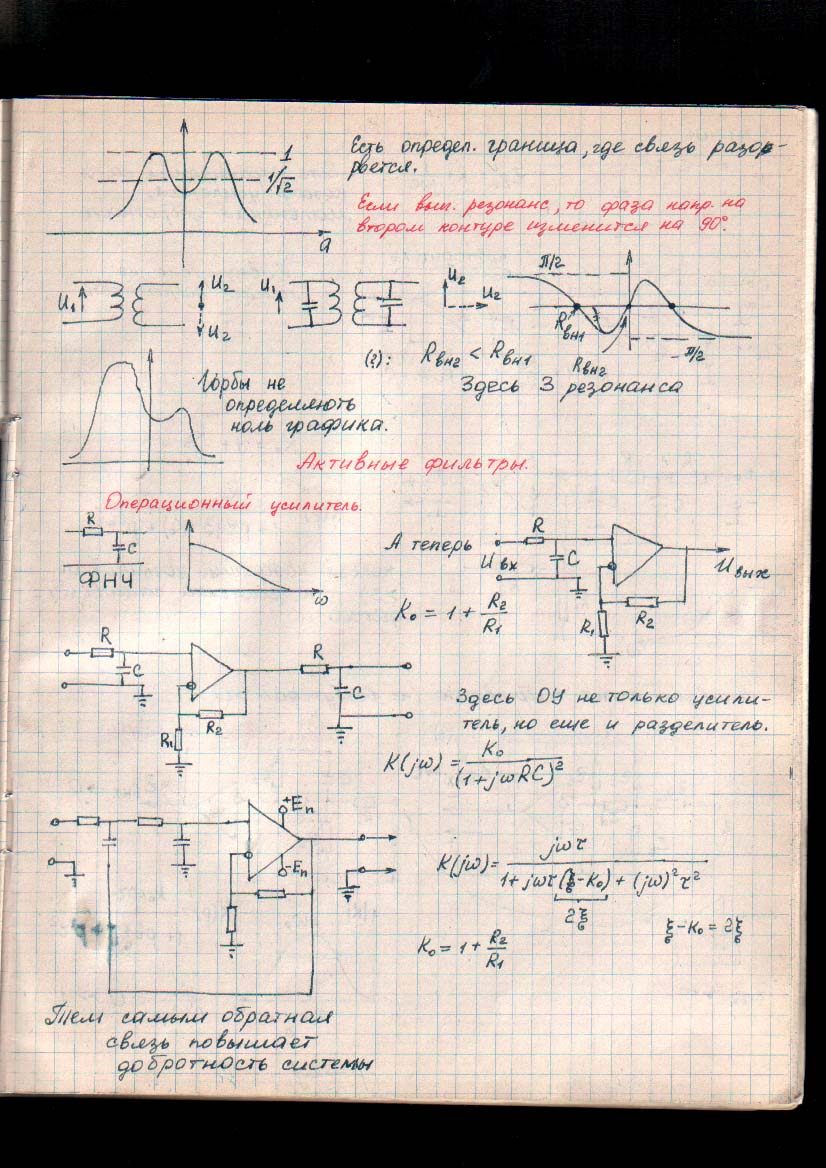 1
1/√2
a
Есть определ. граница, где связь разор-
рвется.
Если вып. резонанс, то фаза напр. на
втором контуре изменится на 90°.
U₁ U₂ U₂
U₁ U₂ U₂
π/2
Rвн1
Rвн2
-π/2
(2): Rвн2 < Rвн1
Здесь 3 резонанса
Горбы не
определяють
ноль графика.
Активные фильтры.
Операционный усилитель.
R
C
ФНЧ
ω
А теперь
R
C
Uвх
Uвых
R₁
R₂
K₀ = 1 + R₂/R₁
R
C
R₁
R₂
R
C
Здесь ОУ не только усили-
тель, но еще и разделитель.
K(jω) = K₀/(1+jωRC)²
+Eп
-Eп
K(jω) = jωτ/(1+jωτ(ξ-K₀)+(jω)²τ²)
2ξ
ξ-K₀ = 2ξ
K₀ = 1 + R₂/R₁
Тем самым обратная
связь повышает
добротность системы